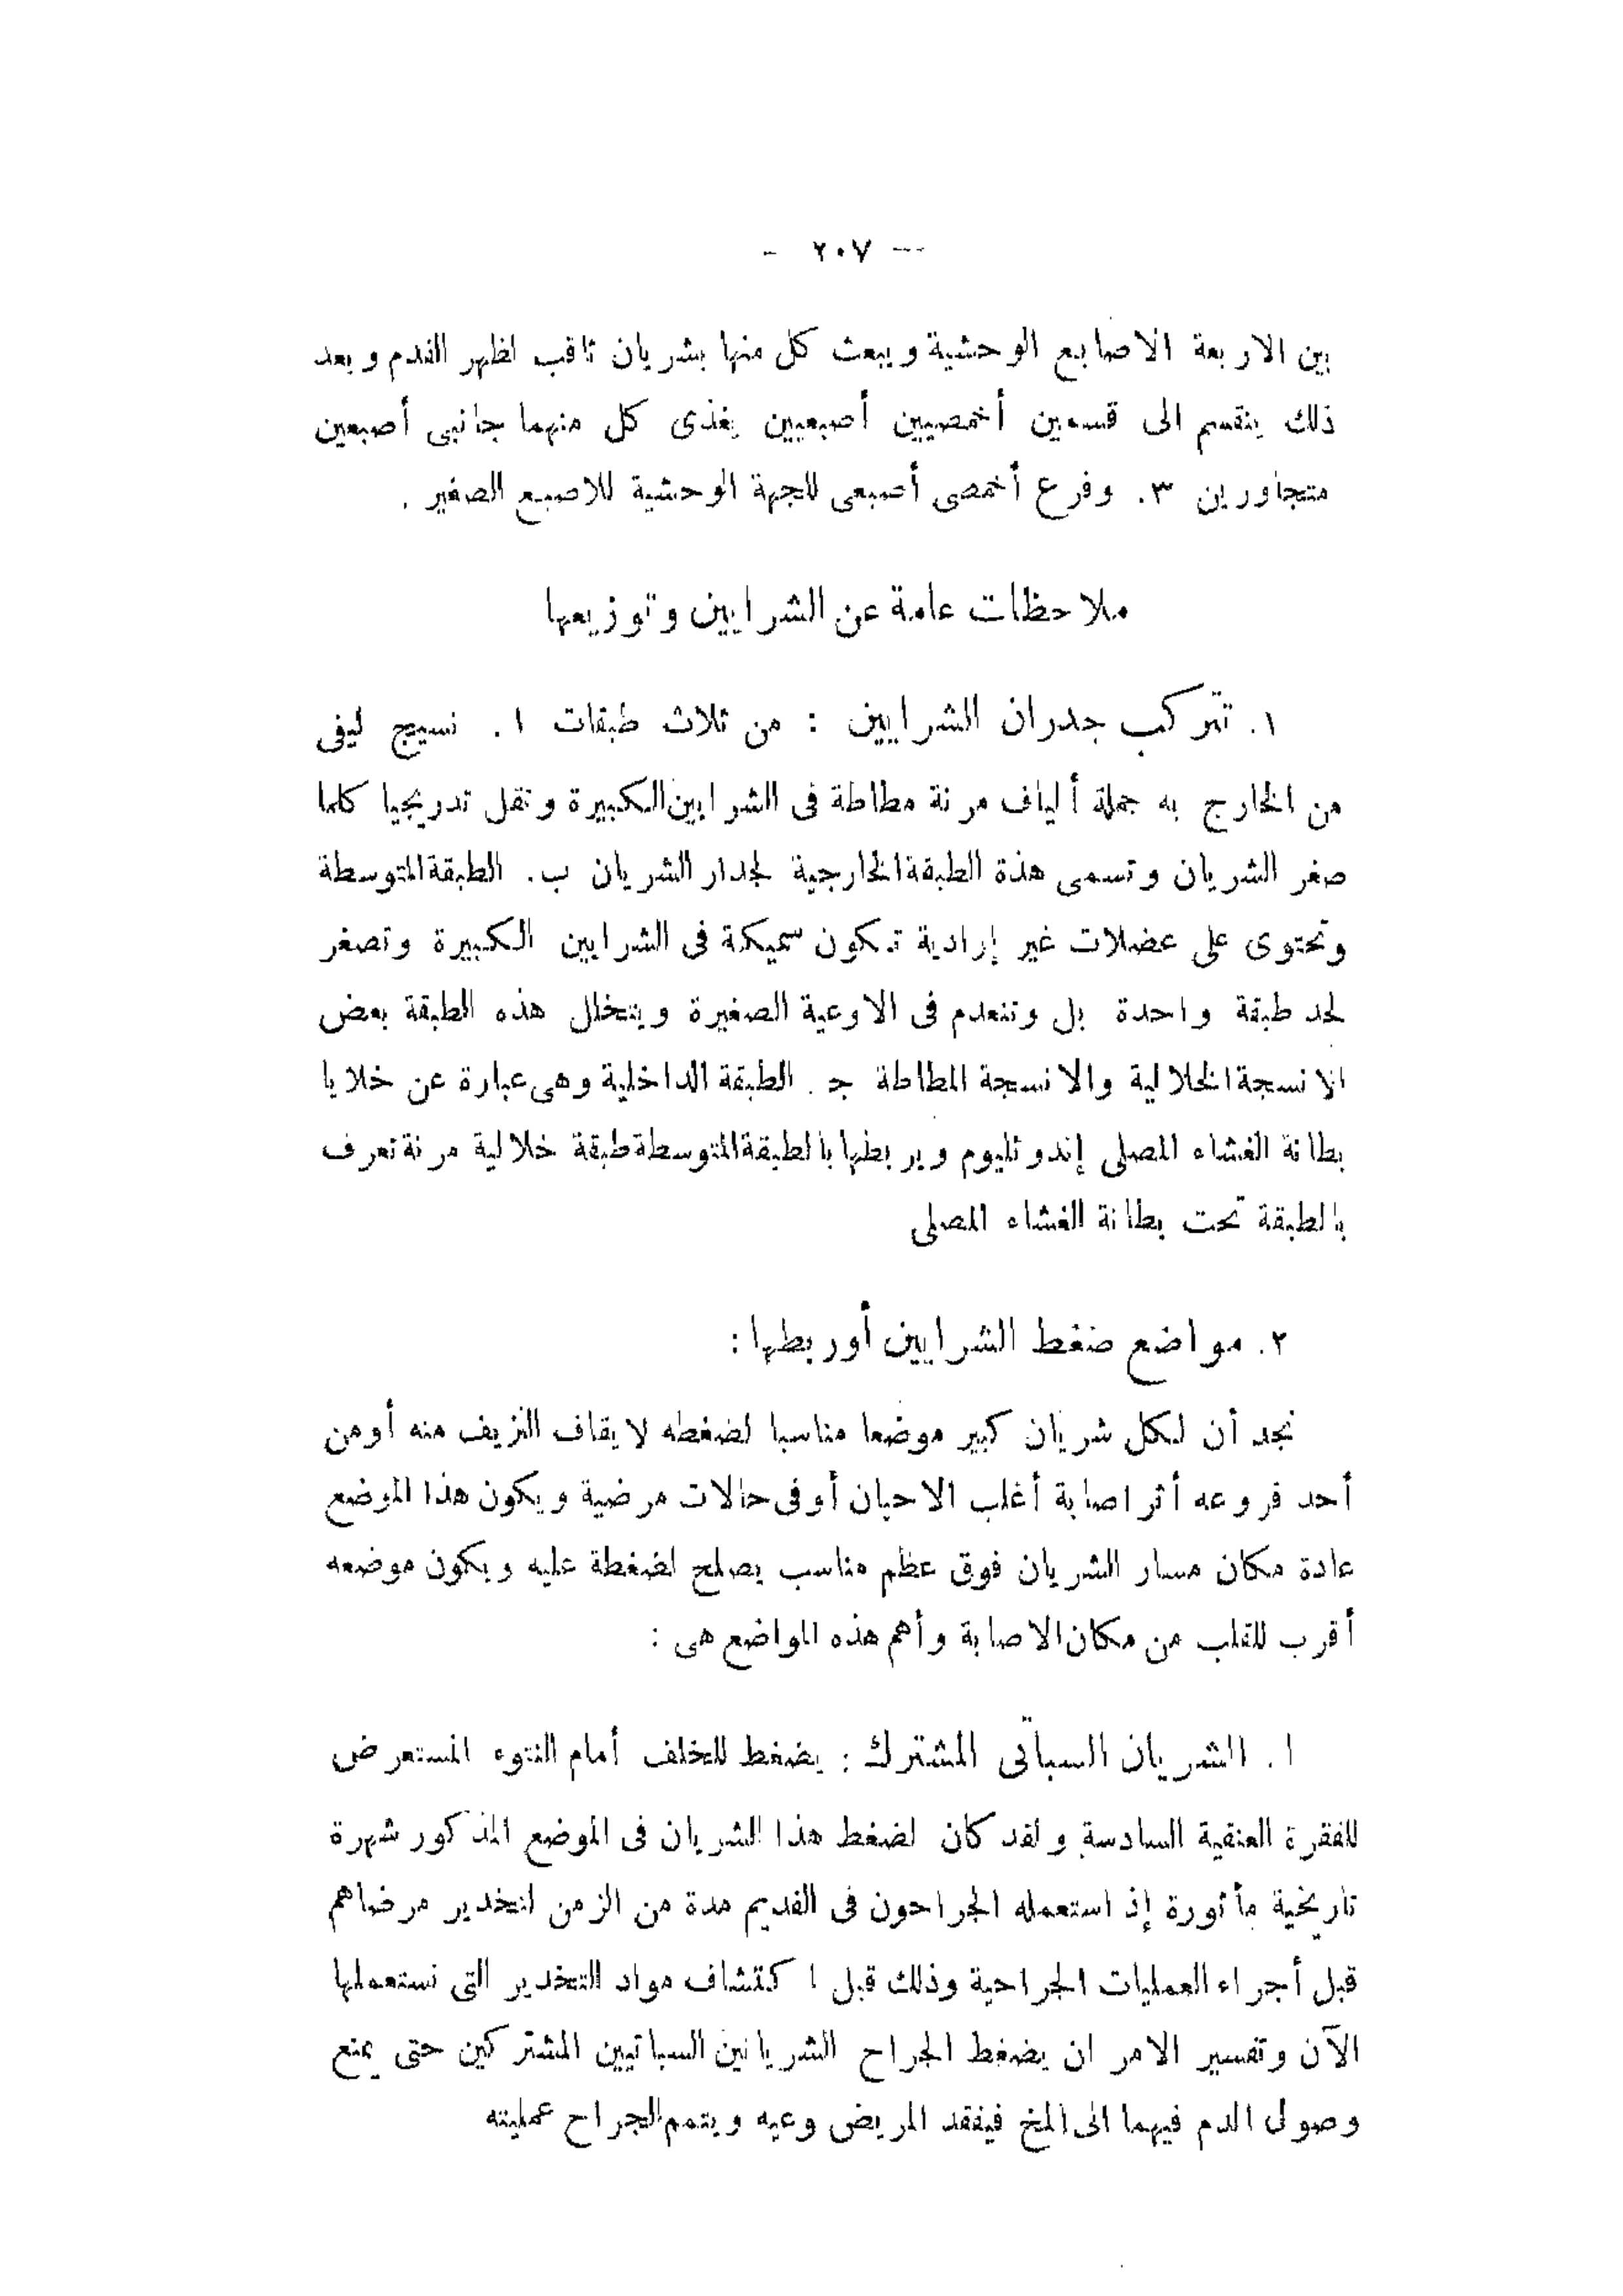 — ٢٠٧ —
بين الاربعة الاصابع الوحشية ويبعث كل منها بشريان ثاقب لظهر القدم وبعد
ذلك ينقسم الى قسمين أخمصيين أصبعيين يغذى كل منهما جانبى أصبعين
متجاورين ٣. وفرع أخمصى أصبعى للجهة الوحشية للاصبع الصغير .
ملاحظات عامة عن الشرايين وتوزيعها
١. تتركب جدران الشرايين : من ثلاث طبقات ا . نسيج ليفى
من الخارج به جملة ألياف مرنة مطاطة فى الشرايين الكبيرة وتقل تدريجيا كلما
صغر الشريان وتسمى هذة الطبقة الخارجية لجدار الشريان ب. الطبقة المتوسطة
وتحتوى على عضلات غير إرادية تكون سميكة فى الشرايين الكبيرة وتصغر
لحد طبقة واحدة بل وتنعدم فى الاوعية الصغيرة ويتخلل هذه الطبقة بعض
الانسجة الخلالية والانسجة المطاطة ج . الطبقة الداخلية وهى عبارة عن خلايا
بطانة الغشاء المصلى إندوثليوم ويربطها بالطبقة المتوسطة طبقة خلالية مرنة تعرف
بالطبقة تحت بطانة الغشاء المصلى
٢. مواضع ضغط الشرايين أوربطها :
نجد أن لكل شريان كبير موضعا مناسبا لضغطه لايقاف النزيف منه أومن
أحد فروعه أثر اصابة أغلب الاحيان أوفى حالات مرضية ويكون هذا الموضع
عادة مكان مسار الشريان فوق عظم مناسب يصلح لضغطة عليه ويكون موضعه
أقرب للقلب من مكان الاصابة وأهم هذه المواضع هى :
ا . الشريان السباتى المشترك : يضغط للخلف أمام النتوء المستعرض
للفقرة العنقية السادسة ولقد كان لضغط هذا الشريان فى الموضع المذكور شهرة
تاريخية مأثورة إذ استعمله الجراحون فى القديم مدة من الزمن لتخدير مرضاهم
قبل أجراء العمليات الجراحية وذلك قبل اكتشاف مواد التخدير التى نستعملها
الآن وتفسير الامر ان يضغط الجراح الشريانين السباتيين المشتركين حتى يمنع
وصول الدم فيهما الى المخ فيفقد المريض وعيه ويتمم الجراح عمليته